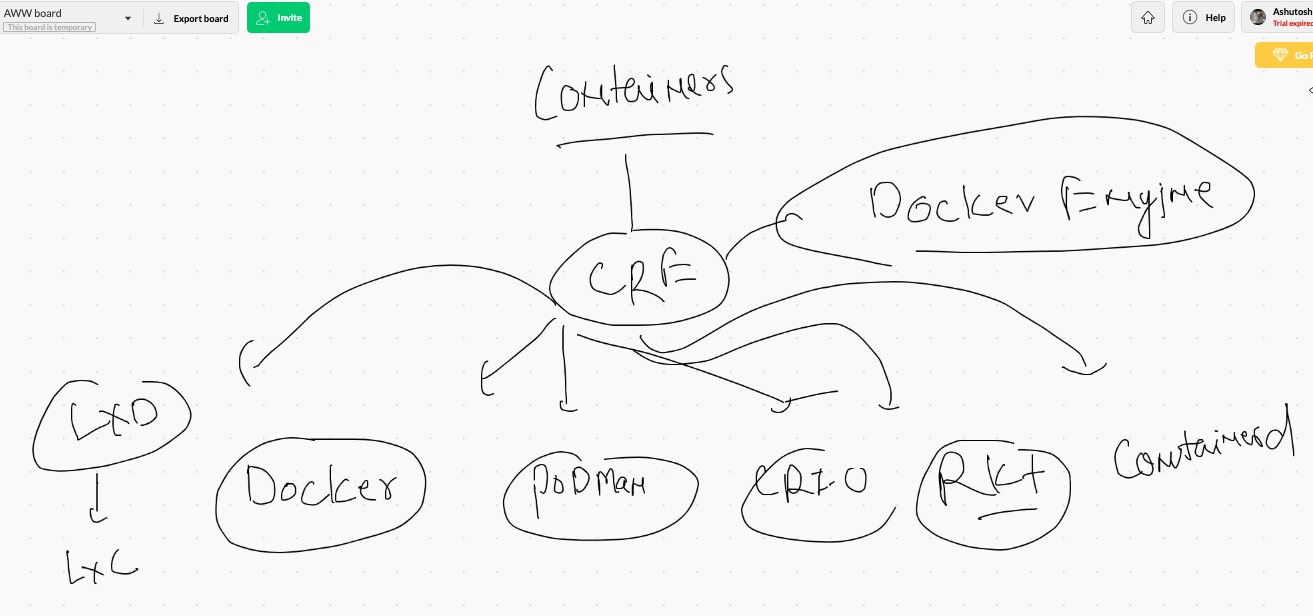 AWW board
This board is temporary
Export board
Invite
Help
Ashutosh
Trial expired
Go
Containers
Docker Engine
CRE
LXD
Docker
PODMAN
CRI-O
RKT
Containerd
LXC